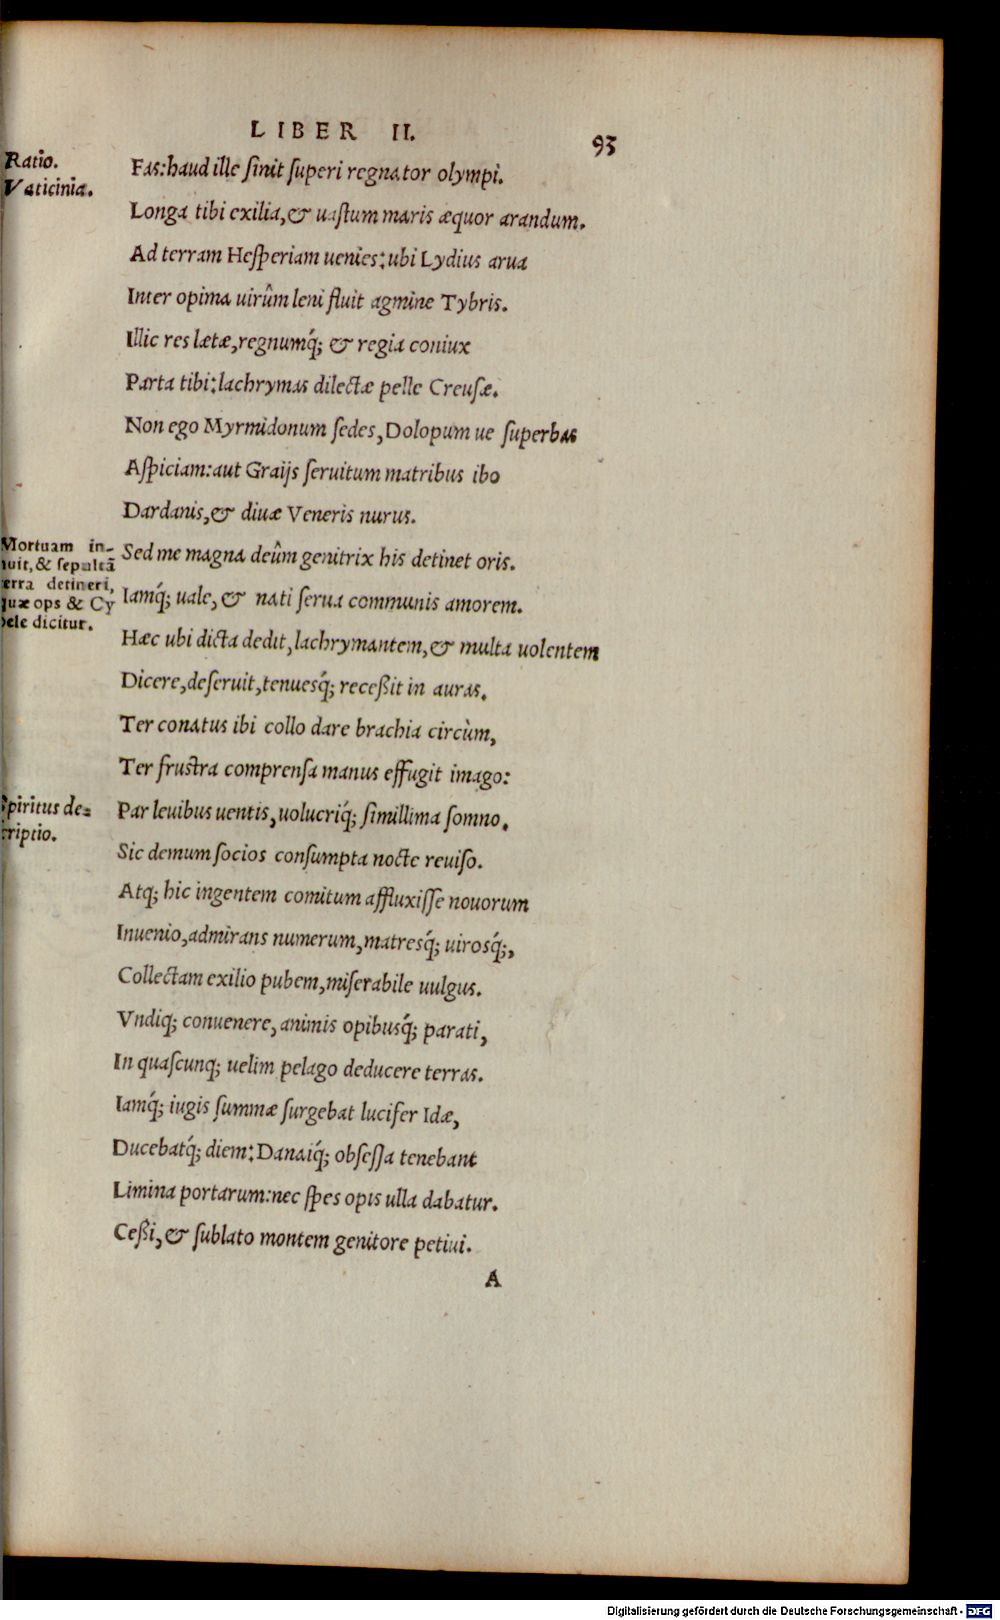 LIBER II.
93
Ratio.
Vaticinia.
Fas: haud ille ſinit ſuperi regnator olympi.
Longa tibi exilia, & uaſtum maris æquor arandum.
Ad terram Heſperiam uenies: ubi Lydius arua
Inter opima uirûm leni fluit agmine Tybris.
Illic res lætæ, regnumq́; & regia coniux
Parta tibi: lachrymas dilectæ pelle Creuſæ.
Non ego Myrmidonum ſedes, Dolopum ue ſuperbas
Aſpiciam: aut Graijs ſeruitum matribus ibo
Dardanis, & diuæ Veneris nurus.
Mortuam in-
nuit, & ſepultā
terra detineri,
quæ ops & Cy
bele dicitur.
Sed me magna deûm genitrix his detinet oris.
Iamq́; uale, & nati ſerua communis amorem.
Hæc ubi dicta dedit, lachrymantem, & multa uolentem
Dicere, deſeruit, tenuesq́; receßit in auras.
Ter conatus ibi collo dare brachia circùm,
Ter fruſtra comprenſa manus effugit imago:
Spiritus de-
criptio.
Par leuibus uentis, uolucriq́; ſimillima ſomno.
Sic demum ſocios conſumpta nocte reuiſo.
Atq; hic ingentem comitum affluxiſſe nouorum
Inuenio, admirans numerum, matresq́; uirosq́;,
Collectam exilio pubem, miſerabile uulgus.
Vndiq; conuenere, animis opibusq́; parati,
In quaſcunq; uelim pelago deducere terras.
Iamq́; iugis ſummæ ſurgebat lucifer Idæ,
Ducebatq́; diem: Danaiq́; obſeſſa tenebant
Limina portarum: nec ſpes opis ulla dabatur.
Ceßi, & ſublato montem genitore petiui.
A
Digitalisierung gefördert durch die Deutsche Forschungsgemeinschaft - DFG